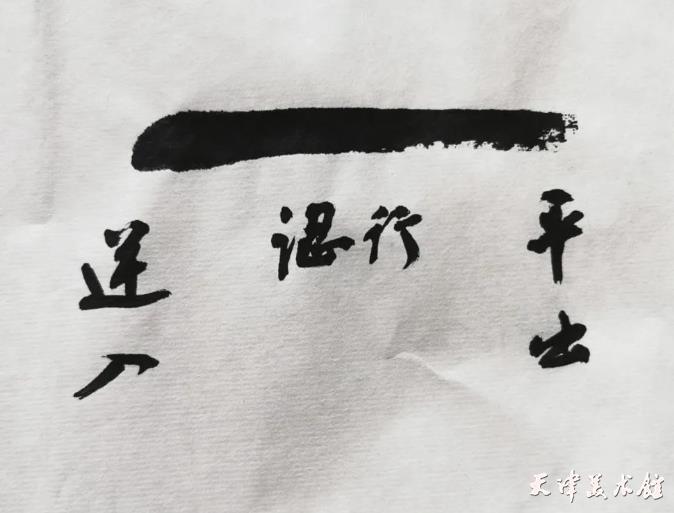 一
逆入
涩行
平出
天津美术馆